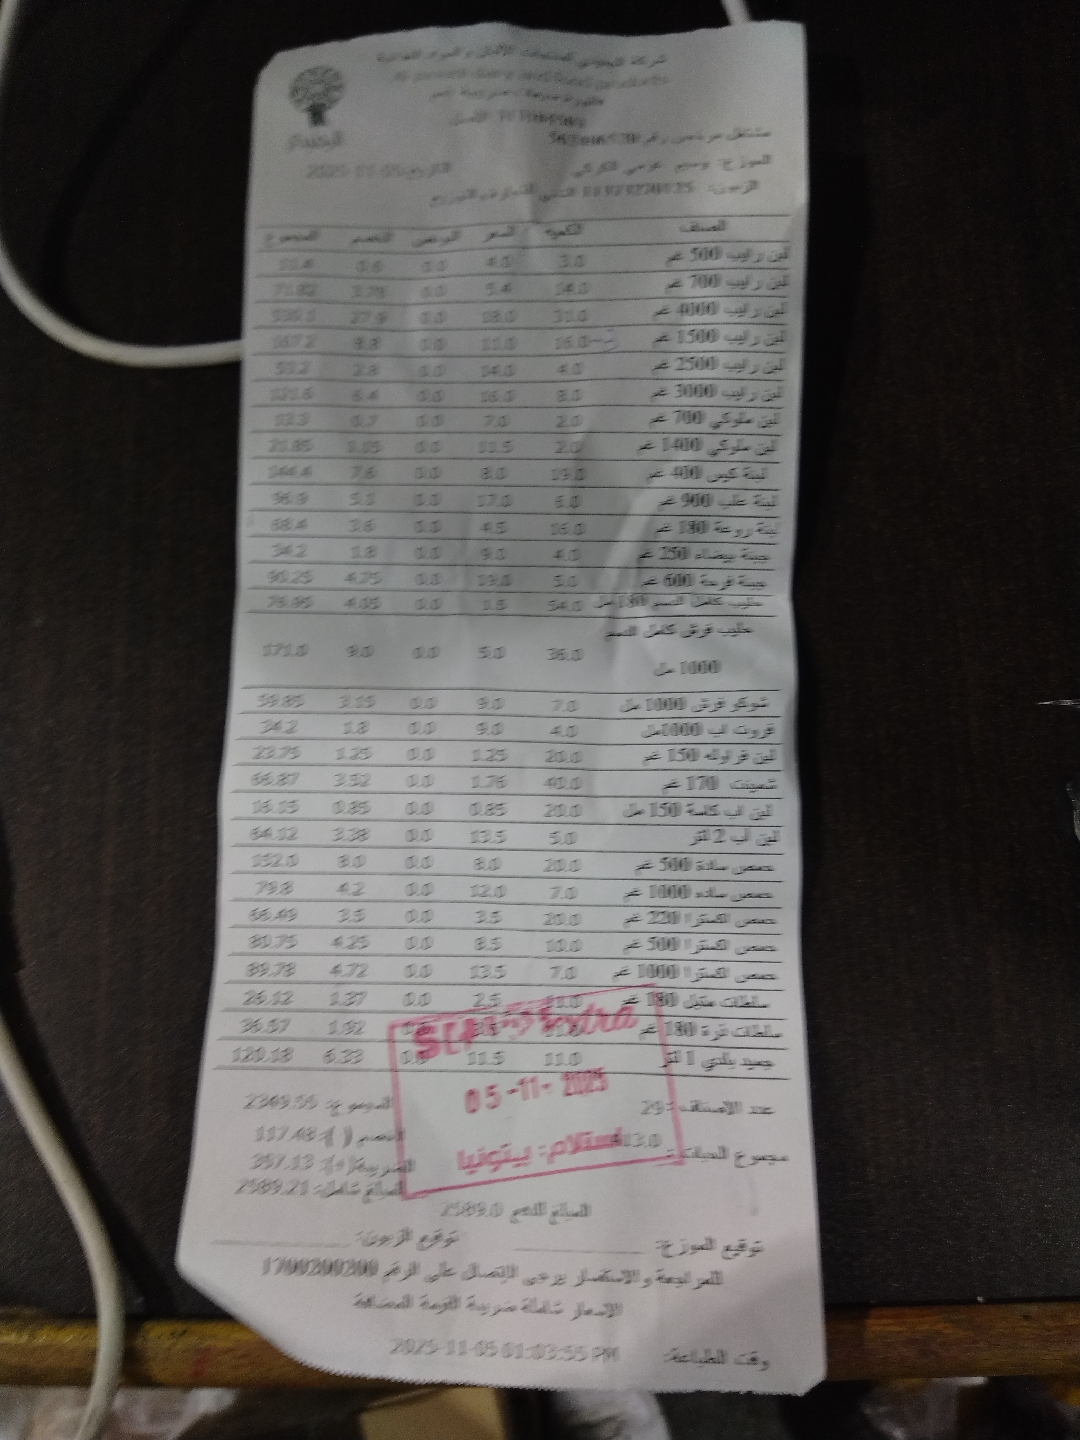 شركة الجنيدي لمنتجات الألبان والمواد الغذائية
فاتورة مبيعات ضريبية رقم
مشتغل مرخص رقم
الموزع: وسيم التاريخ: 2025-11-05
الزبون: 11111220125
الصنف الكمية السعر البونص الخصم المجموع
لبن رايب 500 غم 3.0 4.0 0.0 0.6 11.4
لبن رايب 700 غم 14.0 5.4 0.0 3.78 71.82
لبن رايب 4000 غم 31.0 18.0 0.0 27.9 530.1
لبن رايب 1500 غم 16.0 11.0 0.0 8.8 167.2
لبن رايب 2500 غم 4.0 14.0 0.0 2.8 53.2
لبن رايب 3000 غم 8.0 16.0 0.0 6.4 121.6
لبن ملوكي 700 غم 2.0 7.0 0.0 0.7 13.3
لبن ملوكي 1400 غم 2.0 11.5 0.0 1.15 21.85
لبنة كيس 400 غم 19.0 8.0 0.0 7.6 144.4
لبنة علب 900 غم 6.0 17.0 0.0 5.1 96.9
لبنة روعة 180 غم 16.0 4.5 0.0 3.6 68.4
جبنة بيضاء 250 غم 4.0 9.0 0.0 1.8 34.2
جبنة فرحة 600 غم 5.0 19.0 0.0 4.75 90.25
حليب كامل الدسم 180 مل 54.0 1.5 0.0 4.05 76.95
حليب فرش كامل الدسم
1000 مل 36.0 5.0 0.0 9.0 171.0
شوكو فرش 1000 مل 7.0 9.0 0.0 3.15 59.85
فروت اب 1000مل 4.0 9.0 0.0 1.8 34.2
لبن فراوله 150 غم 20.0 1.25 0.0 1.25 23.75
شمينت 170 غم 40.0 1.76 0.0 3.52 66.87
لبن اب كاسة 150 مل 20.0 0.85 0.0 0.85 16.15
لبن أب 2 لتر 5.0 13.5 0.0 3.38 64.12
حمص سادة 500 غم 20.0 8.0 0.0 8.0 152.0
حمص ساده 1000 غم 7.0 12.0 0.0 4.2 79.8
حمص اكسترا 220 غم 20.0 3.5 0.0 3.5 66.49
حمص اكسترا 500 غم 10.0 8.5 0.0 4.25 80.75
حمص اكسترا 1000 غم 7.0 13.5 0.0 4.72 89.78
سلطات متبل 180 غم 11.0 2.5 0.0 1.37 26.12
سلطات ذرة 180 غم 11.0 3.5 0.0 1.92 36.57
جميد بلدي 1 لتر 11.0 11.5 0.0 6.33 120.18
Extra
05-11-2025
استلام: بيتونيا
عدد الاصناف: 29 المجموع: 2349.55
الخصم ( ): 117.48
مجموع الحبات: 413.0 الضريبة(+): 357.13
المبلغ شامل: 2589.21
المبلغ للدفع 2589.0
توقيع الموزع: توقيع الزبون:
للمراجعة والاستفسار يرجى الإتصال على الرقم 1700200200
الاسعار شاملة ضريبة القيمة المضافة
وقت الطباعة: 2025-11-05 01:03:55 PM